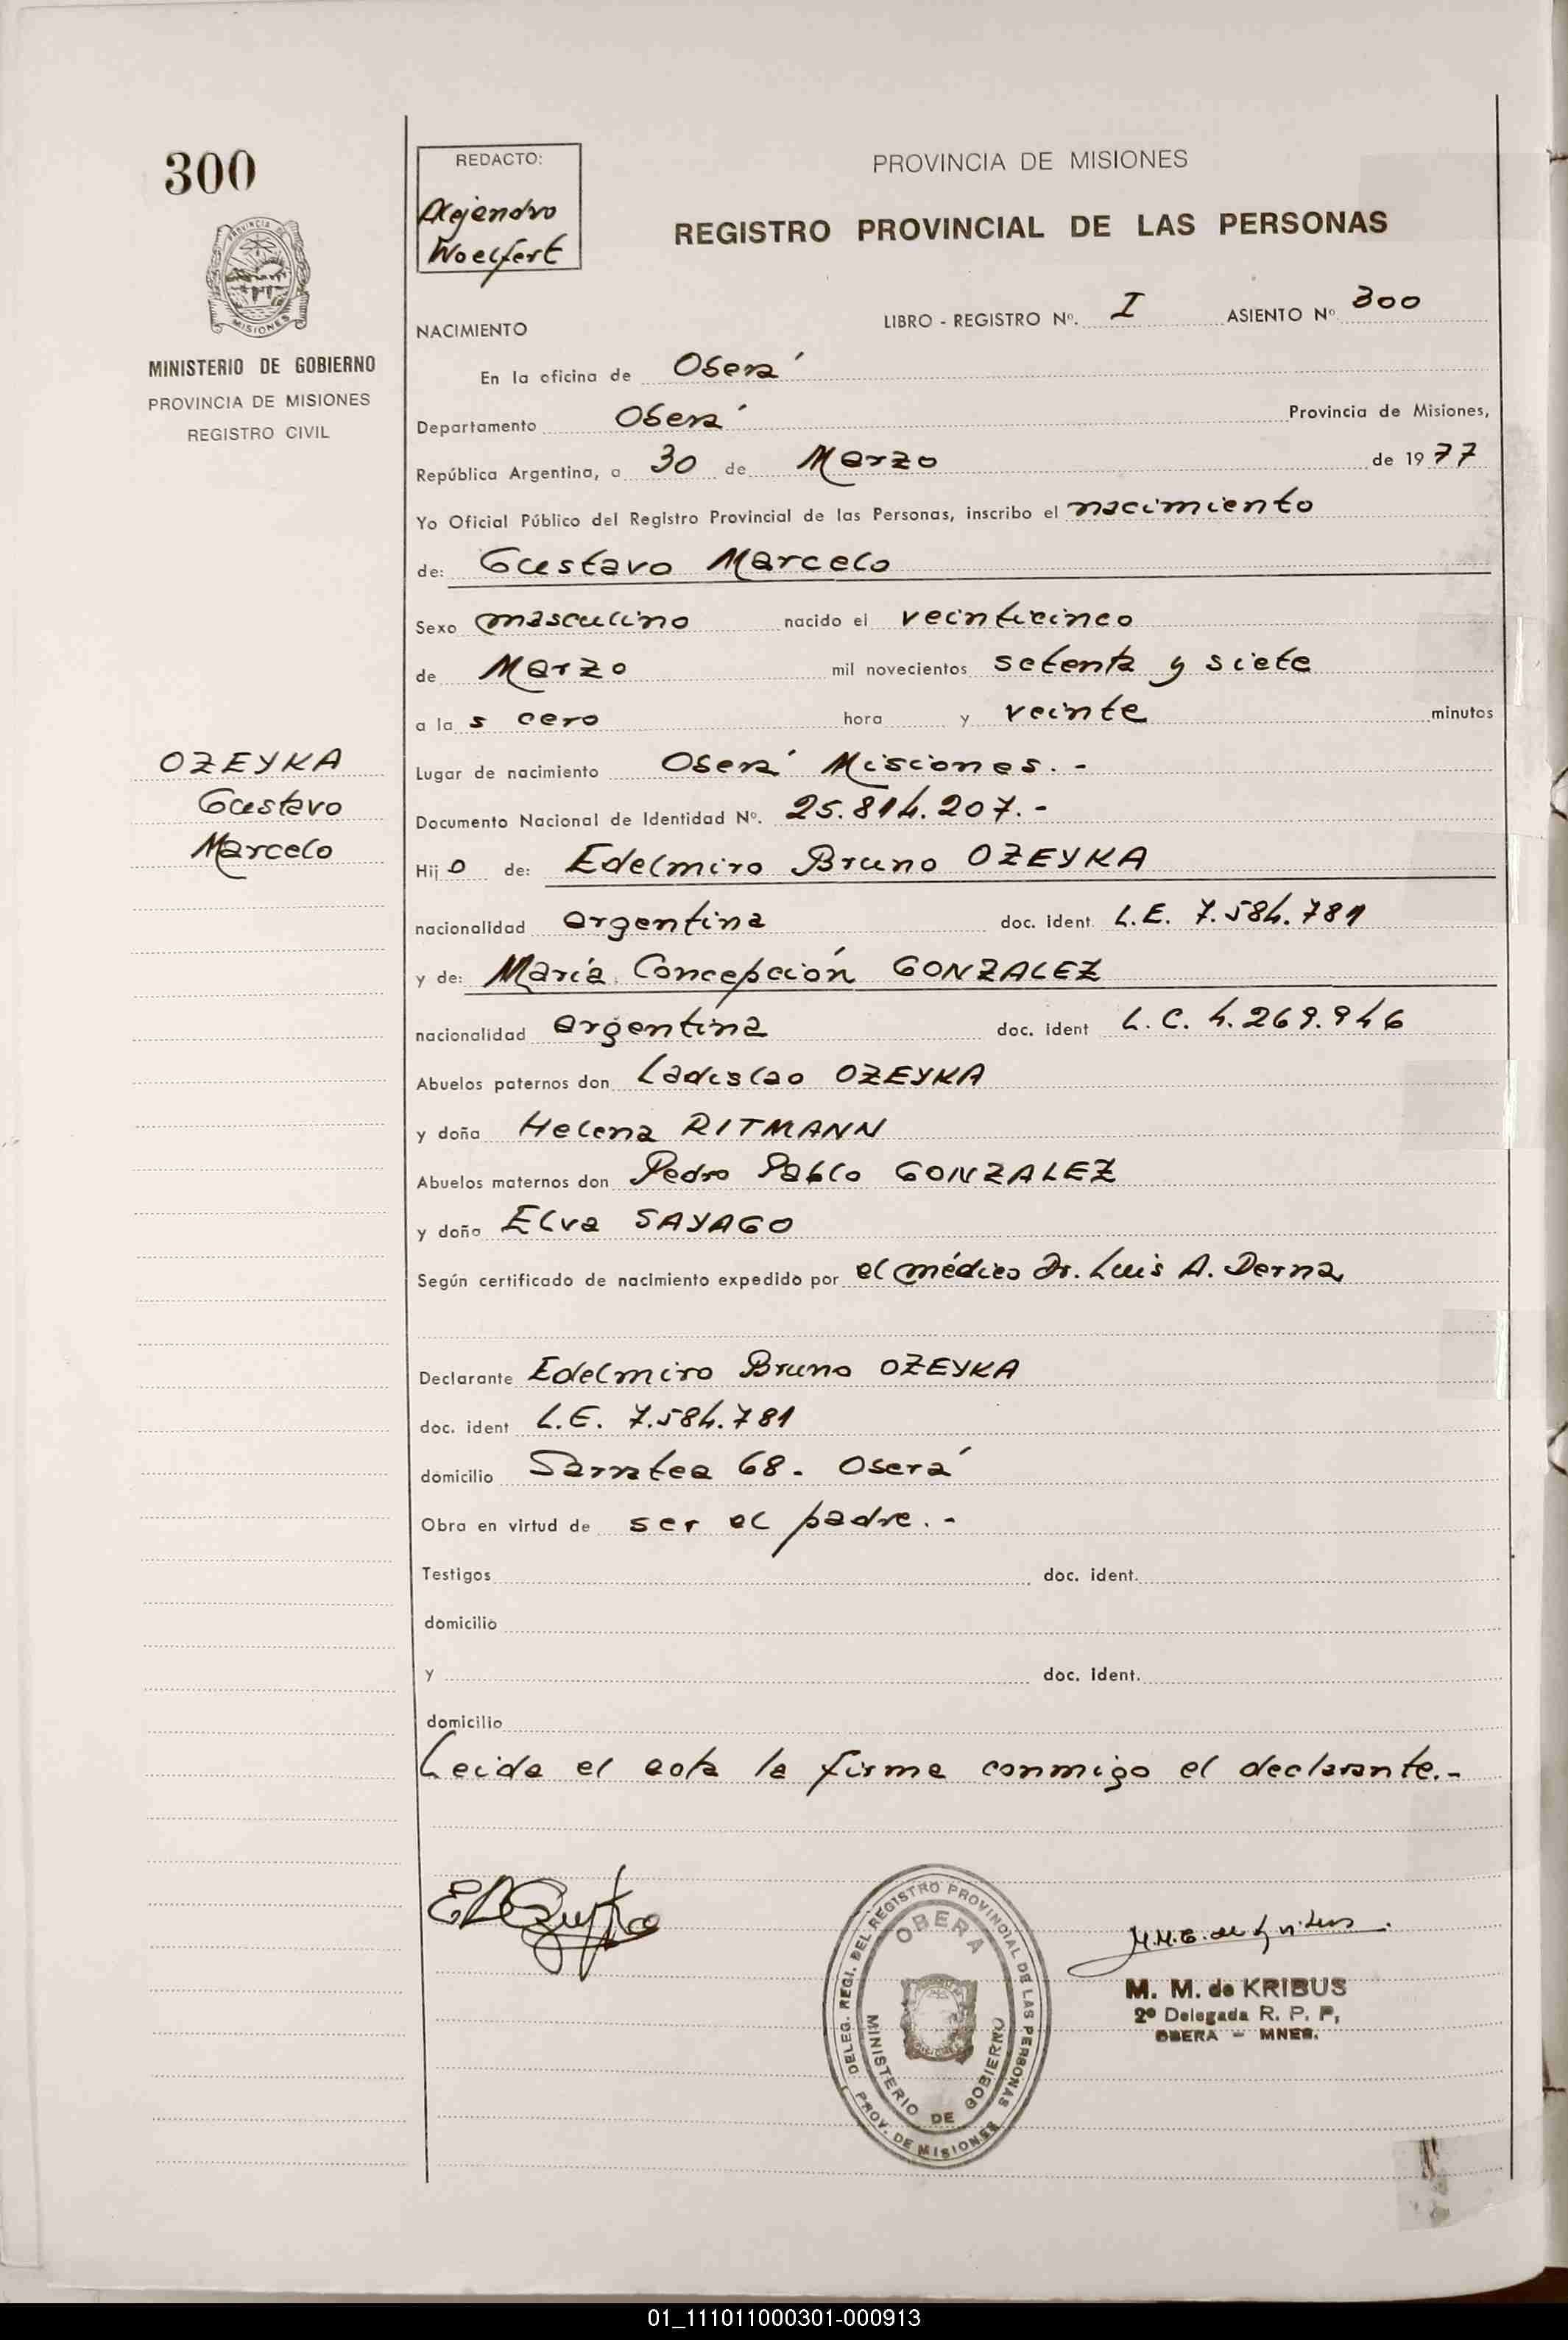 300
REDACTO:
Alejandro
Woelfert
PROVINCIA DE MISIONES
REGISTRO PROVINCIAL DE LAS PERSONAS
PROVINCIA DE
MISIONES
MINISTERIO DE GOBIERNO
PROVINCIA DE MISIONES
REGISTRO CIVIL
NACIMIENTO
LIBRO - REGISTRO Nº. I ASIENTO Nº 300
En la oficina de Oberá
Departamento Oberá Provincia de Misiones,
República Argentina, a 30 de Marzo de 1977
Yo Oficial Público del Registro Provincial de las Personas, inscribo el nacimiento
de: Gustavo Marcelo
Sexo masculino nacido el veinticinco
de Marzo mil novecientos setenta y siete
a las cero hora y veinte minutos
OZEYKA
Gustavo
Marcelo
Lugar de nacimiento Oberá Misiones.-
Documento Nacional de Identidad Nº. 25.814.207.-
Hijo de: Edelmiro Bruno OZEYKA
nacionalidad argentina doc. ident. L.E. 7.584.781
y de: María Concepción GONZALEZ
nacionalidad argentina doc. ident L.C. 4.269.946
Abuelos paternos don Ladislao OZEYKA
y doña Helena RITMANN
Abuelos maternos don Pedro Pablo GONZALEZ
y doña Elva SAYAGO
Según certificado de nacimiento expedido por el médico Dr. Luis A. Derna
Declarante Edelmiro Bruno OZEYKA
doc. ident L.E. 7.584.781
domicilio Sarratea 68. Oberá
Obra en virtud de ser el padre.-
Testigos doc. ident.
domicilio
y doc. ident.
domicilio
Leida el acta la firma conmigo el declarante.-
DELEG. REGI. DEL REGISTRO PROVINCIAL DE LAS PERSONAS
PROV. DE MISIONES
OBERA
MINISTERIO DE GOBIERNO
M. M. de KRIBUS
2º Delegada R. P. P,
OBERA - MNES.
01_111011000301-000913